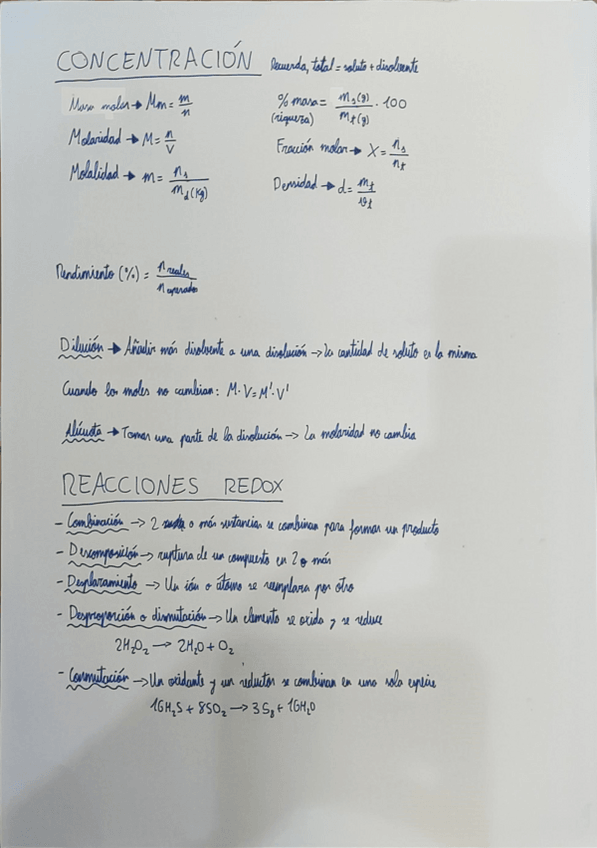 CONCENTRACIÓN Recuerda, total = soluto + disolvente
Masa molar → Mm = m/n
% masa = m_s(g)/m_t(g) · 100
(riqueza)
Molaridad → M = n/V
Fracción molar → X = n_s/n_t
Molalidad → m = n_s/m_d(Kg)
Densidad → d = m_t/v_t
Rendimiento (%) = n reales/n esperados
Dilución → Añadir más disolvente a una disolución → La cantidad de soluto es la misma
Cuando los moles no cambian: M·V = M'·V'
Alícuota → Tomar una parte de la disolución → La molaridad no cambia
REACCIONES REDOX
- Combinación → 2 o más sustancias se combinan para formar un producto
- Descomposición → ruptura de un compuesto en 2 o más
- Desplazamiento → Un ión o átomo se reemplaza por otro
- Desproporción o dismutación → Un elemento se oxida y se reduce
2H₂O₂ → 2H₂O + O₂
- Conmutación → Un oxidante y un reductor se combinan en una sola especie
16H₂S + 8SO₂ → 3S₈ + 16H₂O